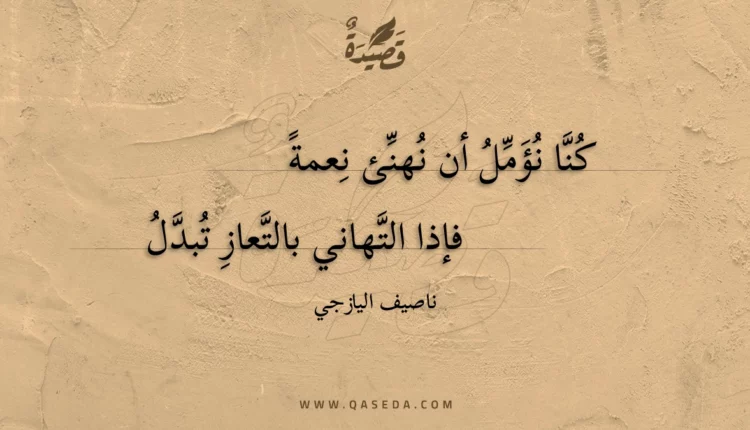 قَصِيدَةٌ
كُنَّا نُؤَمِّلُ أن نُهنِّئ نِعمةً
فإذا التَّهاني بالتَّعازِ تُبدَّلُ
ناصيف اليازجي
WWW.QASEDA.COM